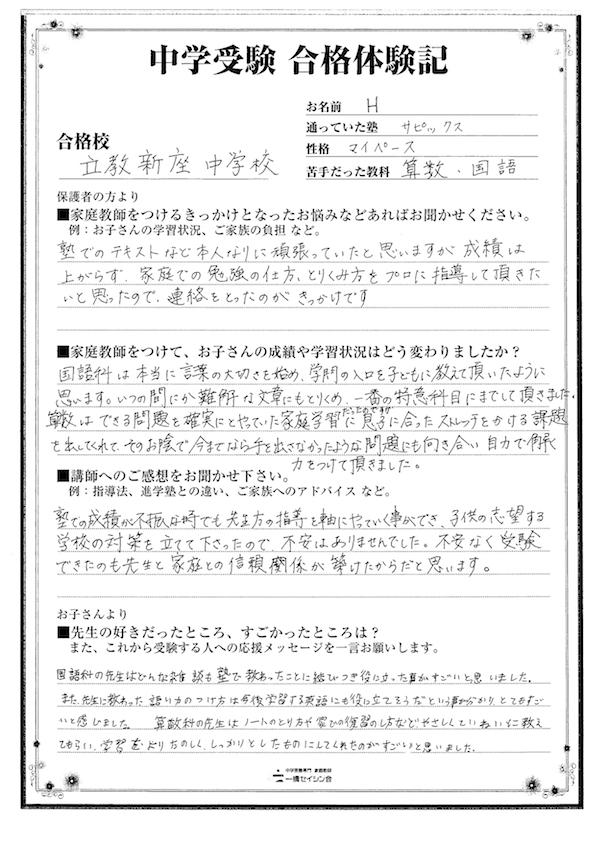 中学受験 合格体験記
お名前 H
通っていた塾 サピックス
合格校
性格 マイペース
立教新座中学校
苦手だった教科 算数・国語
保護者の方より
■家庭教師をつけるきっかけとなったお悩みなどあればお聞かせください。
例：お子さんの学習状況、ご家族の負担 など。
塾でのテキストなど本人なりに頑張っていたと思いますが 成績は
上がらず、家庭での勉強の仕方、とりくみ方をプロに指導して頂きた
いと思ったので、連絡をとったのがきっかけです
■家庭教師をつけて、お子さんの成績や学習状況はどう変わりましたか？
国語科は本当に言葉の大切さを始め、学問の入口を子どもに教えて頂いたように
思います。いつの間にか難解な文章にもとりくめ、一番の特意科目にまでして頂きました。
算数はできる問題を確実にとやっていた家庭学習だったのですが 息子に合ったストレッチをかける課題
を出してくれて、そのお陰で今までなら手を出さなかったような問題にも向き合い 自力で解く
力をつけて頂きました。
■講師へのご感想をお聞かせ下さい。
例：指導法、進学塾との違い、ご家族へのアドバイス など。
塾での成績が不振な時でも先生方の指導を軸にやっていく事ができ、子供の志望する
学校の対策を立てて下さったので、不安はありませんでした。不安なく受験
できたのも先生と家庭との信頼関係が築けたからだと思います。
お子さんより
■先生の好きだったところ、すごかったところは？
また、これから受験する人への応援メッセージを一言お願いします。
国語科の先生はどんな雑談も塾で教わったことに結びつき役に立った事がすごいと思いました。
また、先生に教わった語い力のつけ方は今後学習する英語にも役に立てそうだという事が分かり、とてもすご
いと感じました。 算数科の先生はノートのとり方や家での復習のし方などやさしくていねいに教え
てもらい、学習をよりたのしく、しっかりとしたものにしてくれたのがすごいと思いました。
中学受験専門 家庭教師
一橋セイシン会